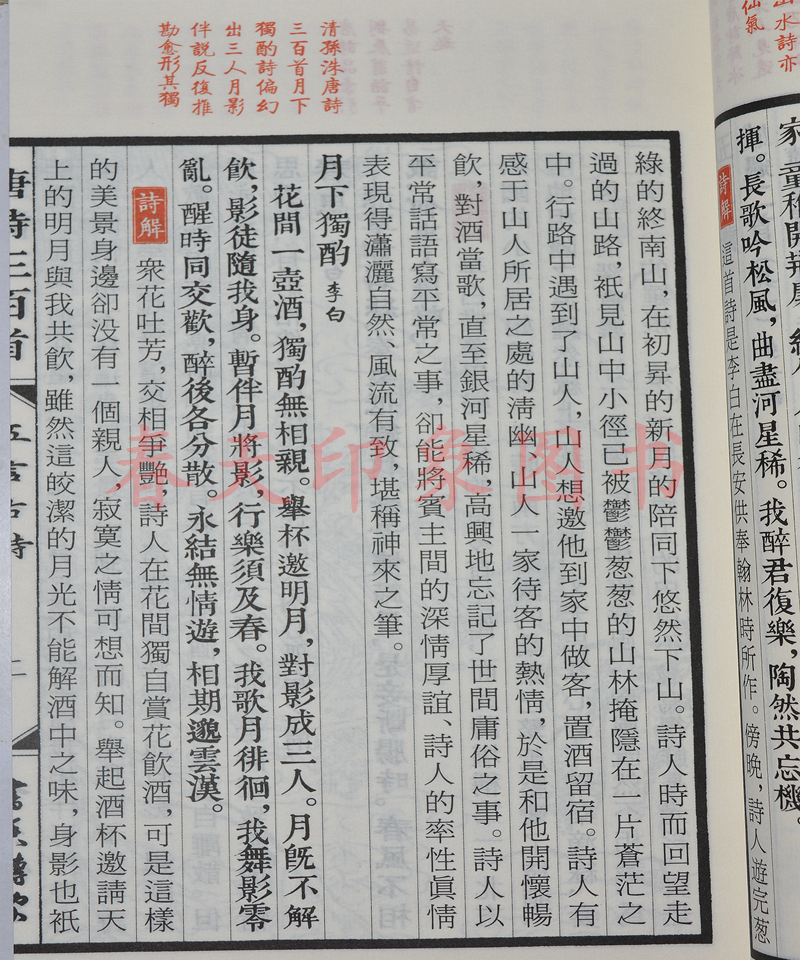 出水詩亦
仙氣
揮。長歌吟松風，曲盡河星稀。我醉君復樂，陶然共忘機。
詩解 這首詩是李白在長安供奉翰林時所作。傍晚，詩人遊完葱
清孫洙唐詩
三百首月下
獨酌詩偏幻
出三人月影
伴説反復推
勘愈形其獨
綠的終南山，在初昇的新月的陪同下悠然下山。詩人時而回望走
過的山路，衹見山中小徑已被鬱鬱葱葱的山林掩隱在一片蒼茫之
中。行路中遇到了山人，山人想邀他到家中做客，置酒留宿。詩人有
感于山人所居之處的清幽、山人一家待客的熱情，於是和他開懷暢
飲，對酒當歌，直至銀河星稀，高興地忘記了世間庸俗之事。詩人以
平常話語寫平常之事，卻能將賓主間的深情厚誼、詩人的率性眞情
表現得瀟灑自然、風流有致，堪稱神來之筆。
月下獨酌 李白
花間一壺酒，獨酌無相親。舉杯邀明月，對影成三人。月旣不解
飲，影徒隨我身。暫伴月將影，行樂須及春。我歌月徘徊，我舞影零
亂。醒時同交歡，醉後各分散。永結無情遊，相期邈雲漢。
詩解 衆花吐芳，交相爭艷，詩人在花間獨自賞花飲酒，可是這樣
的美景身邊卻没有一個親人，寂寞之情可想而知。舉起酒杯邀請天
上的明月與我共飲，雖然這皎潔的月光不能解酒中之味，身影也衹
唐詩三百首 五言古詩 二
春天印象图书